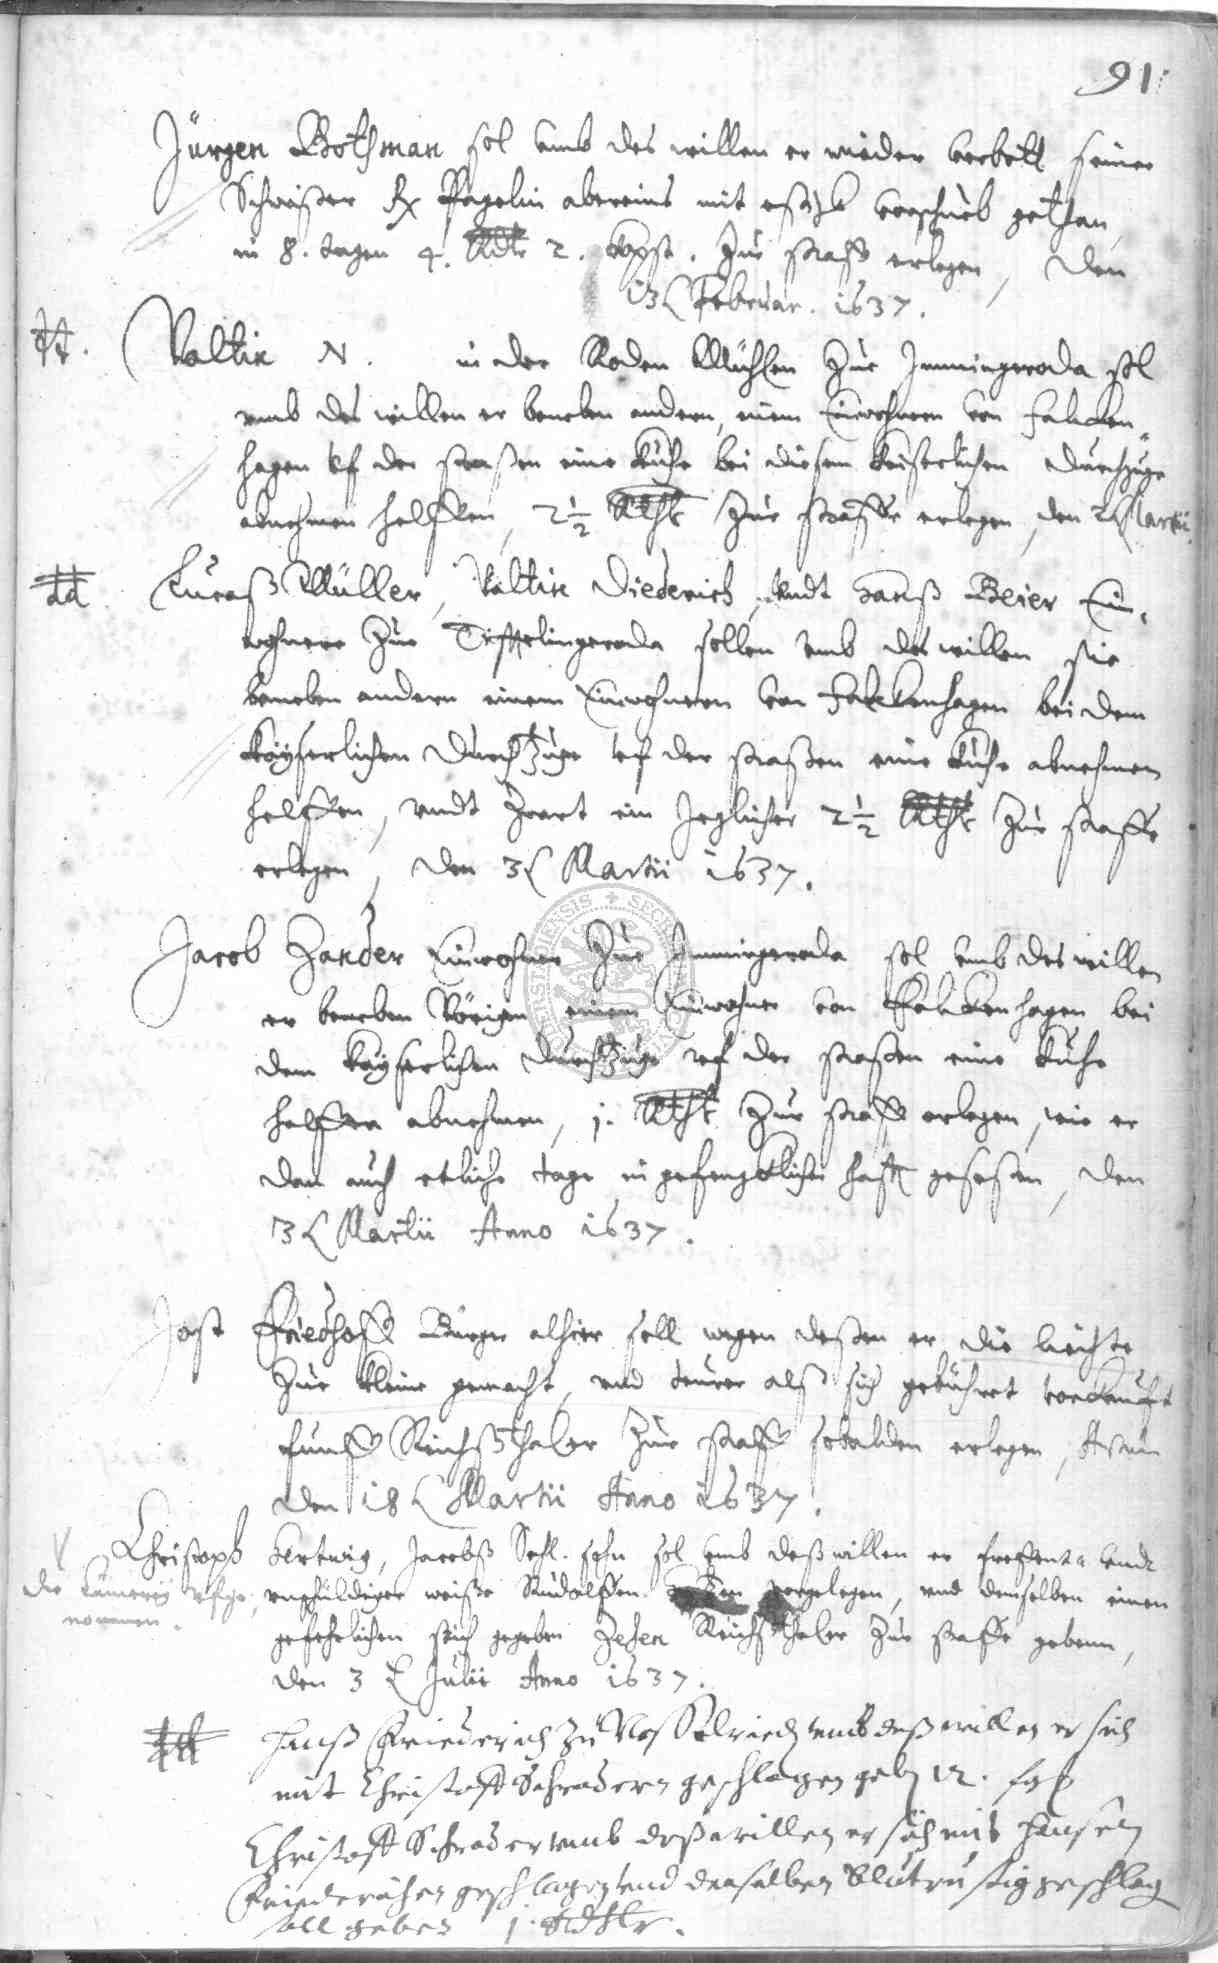 91
Jürgen Bothman sol umb des willen er wieder verbott seiner
Schwester abereins mit vorschub gethan,
in 8. tagen 4. 2. zur straff erlegen, den
13 Februar. 1637.
Valtin N. in der Roden Mühlen zur Immingeroda sol
umb des willen er beneben andern, einem Einwohnern von Falcken-
hagen uf der straßen eine Kuhe bei diesem Keiserlichen durchzuge
abnehmen helffen, 2½ Rthlr zur straffe erlegen, den 2 Martii.
dd
Lucaß Müller, Valtin Diederich, undt Hanß Beier Ein-
wohnere zur Tiftlingeroda sollen umb des willen sie
beneben andern einem Einwohnern von Falckenhagen bei dem
Kayserlichen durchzuge uf der straßen eine Kuhe abnehmen
helffen, undt zwart ein jeglicher 2½ Rthlr zur straffe
erlegen, den 3 Martii 1637.
Jacob Zander Einwohner zur Immingeroda sol umb des willen
er beneben vorigen einem Einwohner von Falckenhagen bei
dem Kayserlichen durchzuge uf der straßen eine Kuhe
helffen abnehmen, j. Rthlr zur straff erlegen, wie er
dan auch etliche tage in gefengklicher hafft geseßen, den
3 Martii Anno 1637.
Jost Friedhoff Bürger alhier soll wegen deßen er die liechte
zur kleine gemacht, und teurer alß sich gebühret verkaufft
funff Reichßthaler zur straff sobalden erlegen, Actum
den 18 Martii Anno 1637.
Christoph Hertwig, Jacobß Sehl. sohn sol umb deßwillen er undt
die Cämmerey
unschüldiger weiße Rudolffen vorgelegen, und demselben einen
nommen.
gefehrlichen stich gegeben Zehen Reichsthaler zur straffe geben,
den 3 Julii Anno 1637.
Hanß Friederich zu Nesselried umb deß willen er sich
mit Christoff Schradern geschlagen geb 12.
Christoff Schrader umb deß willen er sich mit Hansen
Friederichen geschlagen und denselben blutrustig geschlag
soll geben j. Rdthlr.
SECRE